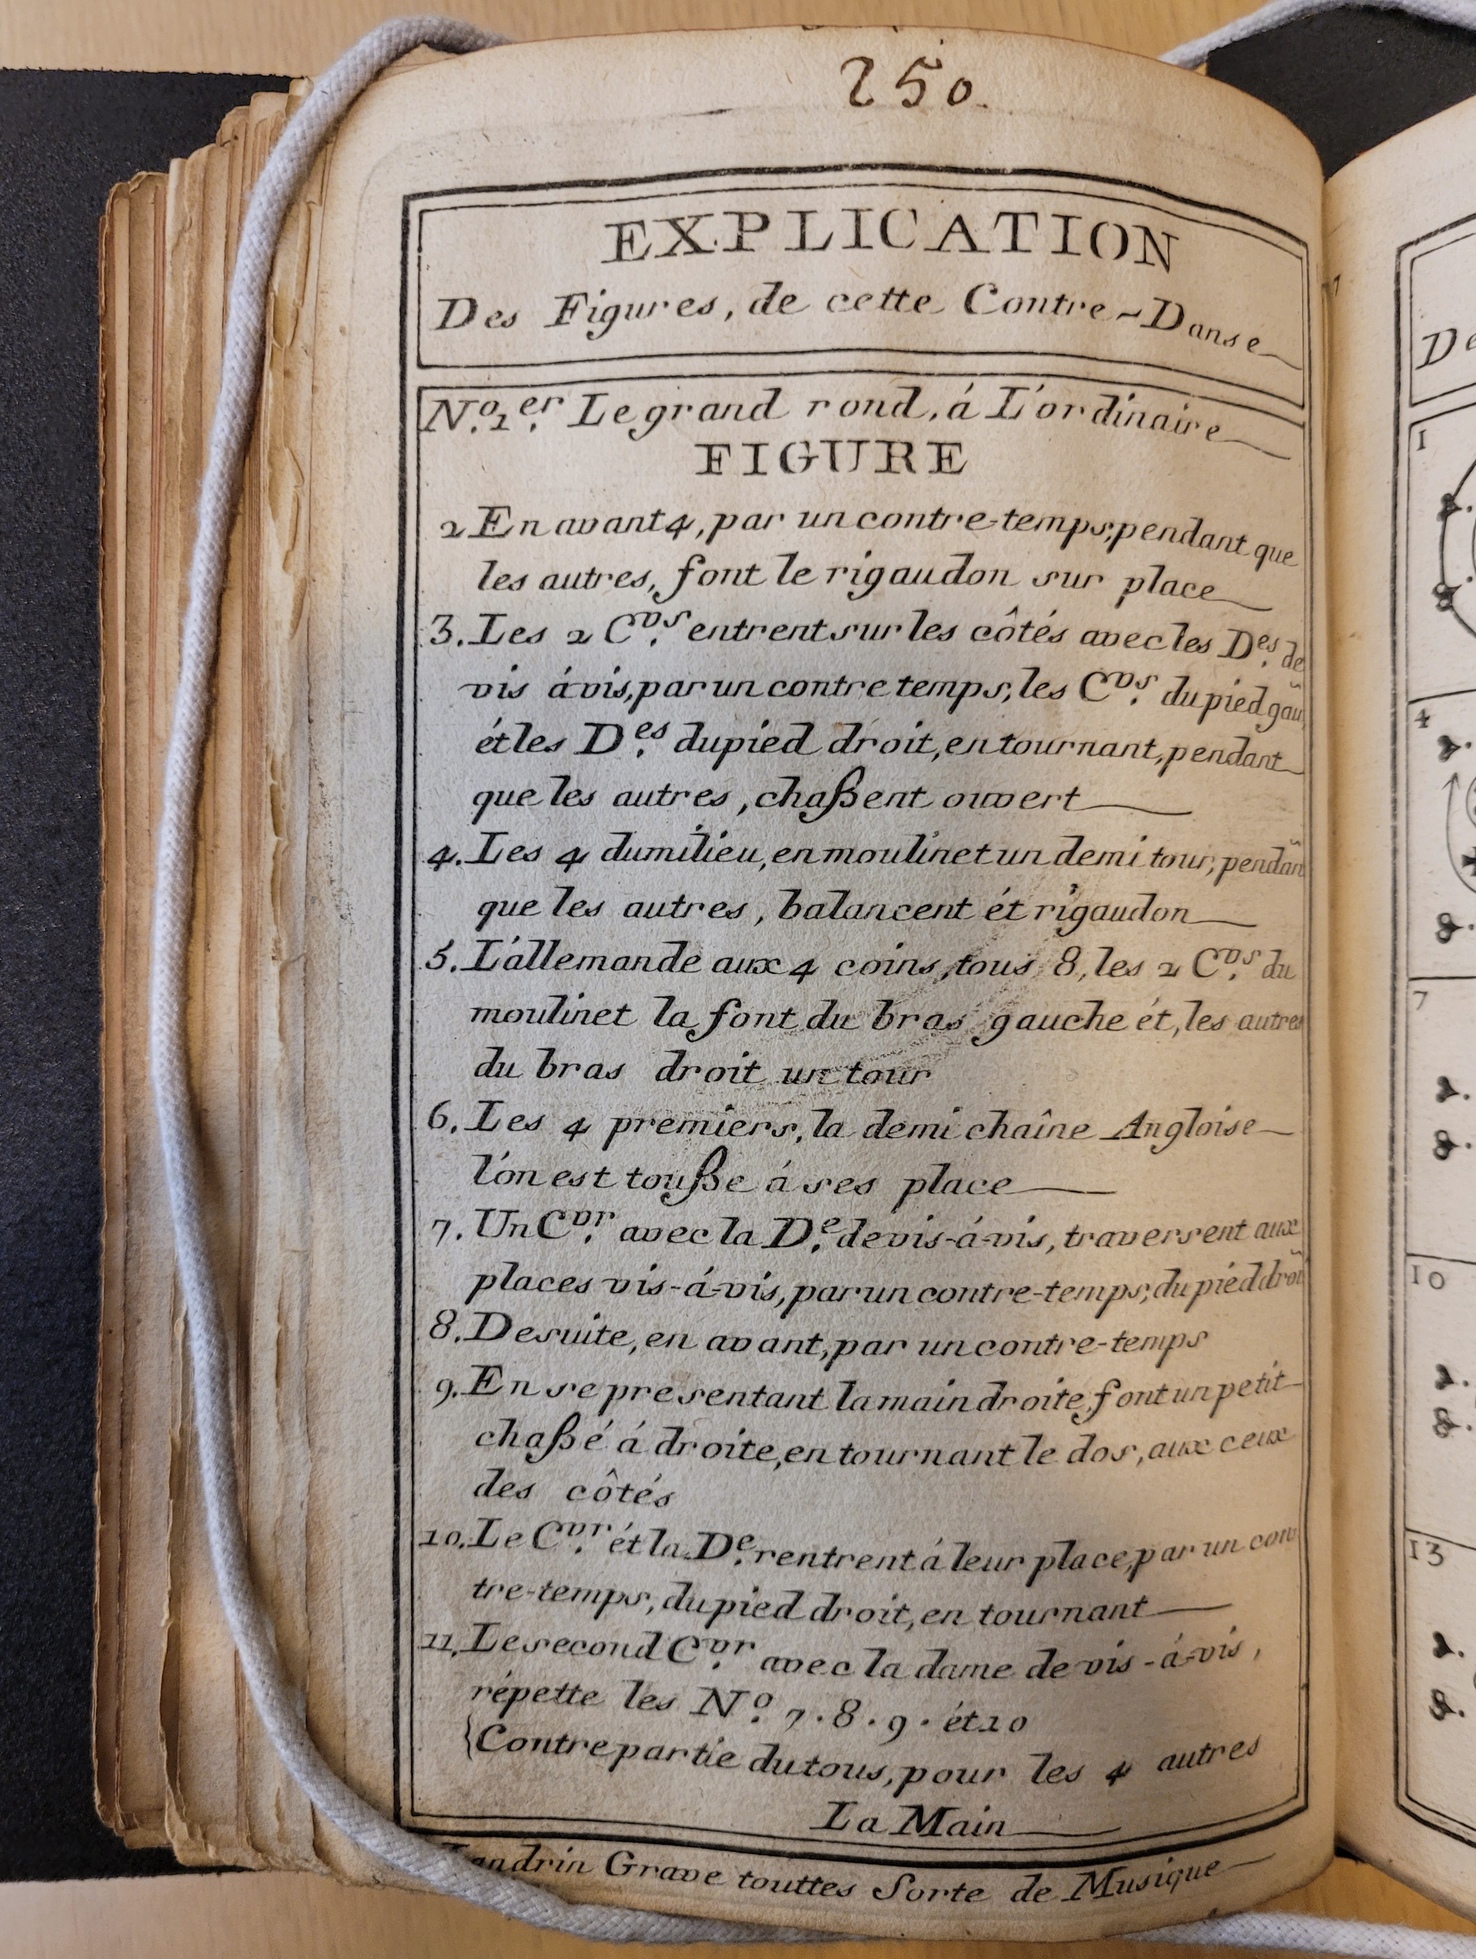 250.
EXPLICATION
Des Figures, de cette Contre-Danse
N.º 1.er Le grand rond, á L'ordinaire
FIGURE
2 En avant 4, par un contre-temps, pendant que
les autres, font le rigaudon sur place
3. Les 2 C.vrs entrent sur les côtés avec les D.es de
vis ávis, par un contre temps, les C.vrs du pied gau
ét les D.es du pied droit, en tournant, pendant
que les autres, chaßent ouvert
4. Les 4 du milieu, en moulinet un demi tour, pendan
que les autres, balancent ét rigaudon
5. L'allemande aux 4 coins, tous 8, les 2 C.vrs du
moulinet la font du bras gauche ét, les autres
du bras droit un tour
6. Les 4 premiers, la demi chaîne Angloise
l'on est touße á ses place
7. Un C.vr avec la D.e de vis-á-vis, traversent aux
places vis-á-vis, par un contre-temps, du pied droi
8. De suite, en avant, par un contre-temps
9. En se presentant la main droite, font un petit
chaßé á droite, en tournant le dos, aux ceux
des côtés
10. Le C.vr ét la D.e rentrent á leur place, par un con
tre-temps, du pied droit, en tournant
11. Le second C.vr avec la dame de vis-á-vis,
répette les N.º 7. 8. 9. ét 10
{Contre partie du tous, pour les 4 autres
La Main
Landrin Grave touttes Sorte de Musique
1
4
7
10
13